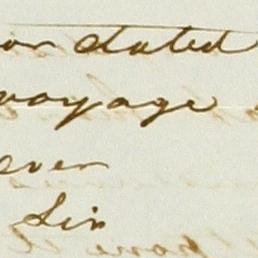 or dated
voyage
ever
Sir